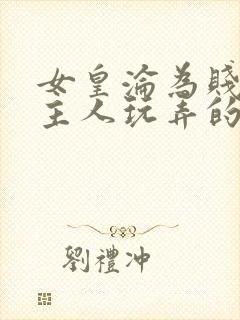 女皇淪為賤
主人玩弄的
劉禮冲